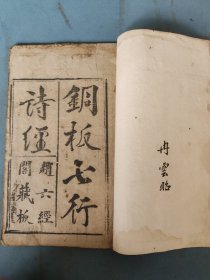 冉雲
銅板七行
詩經
耀六經
閣藏板